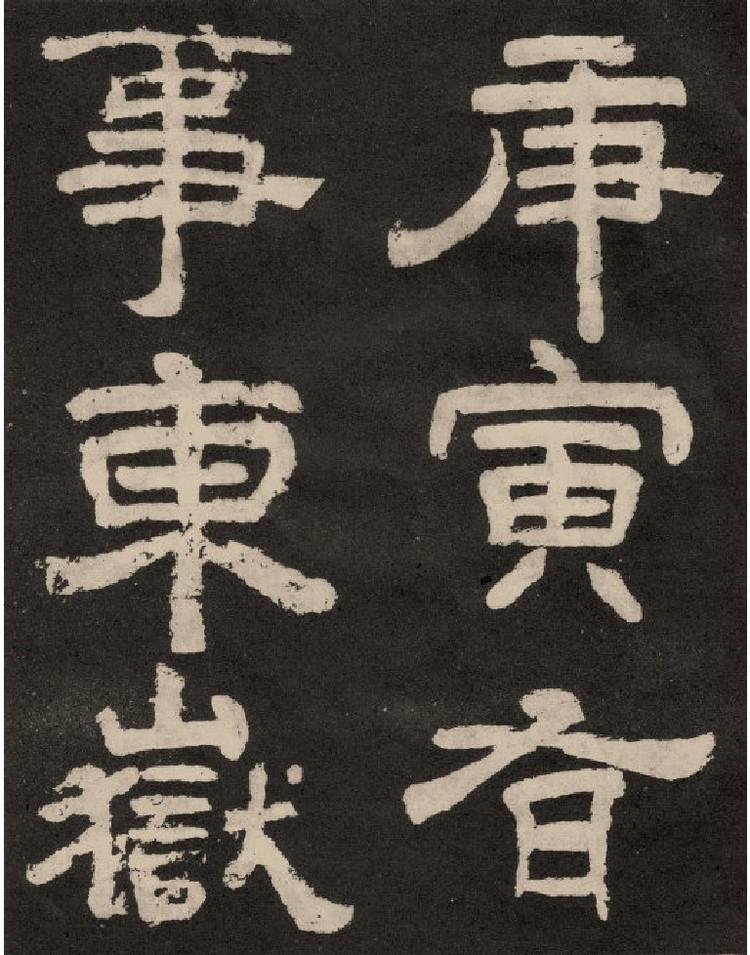 庚寅有
事東嶽